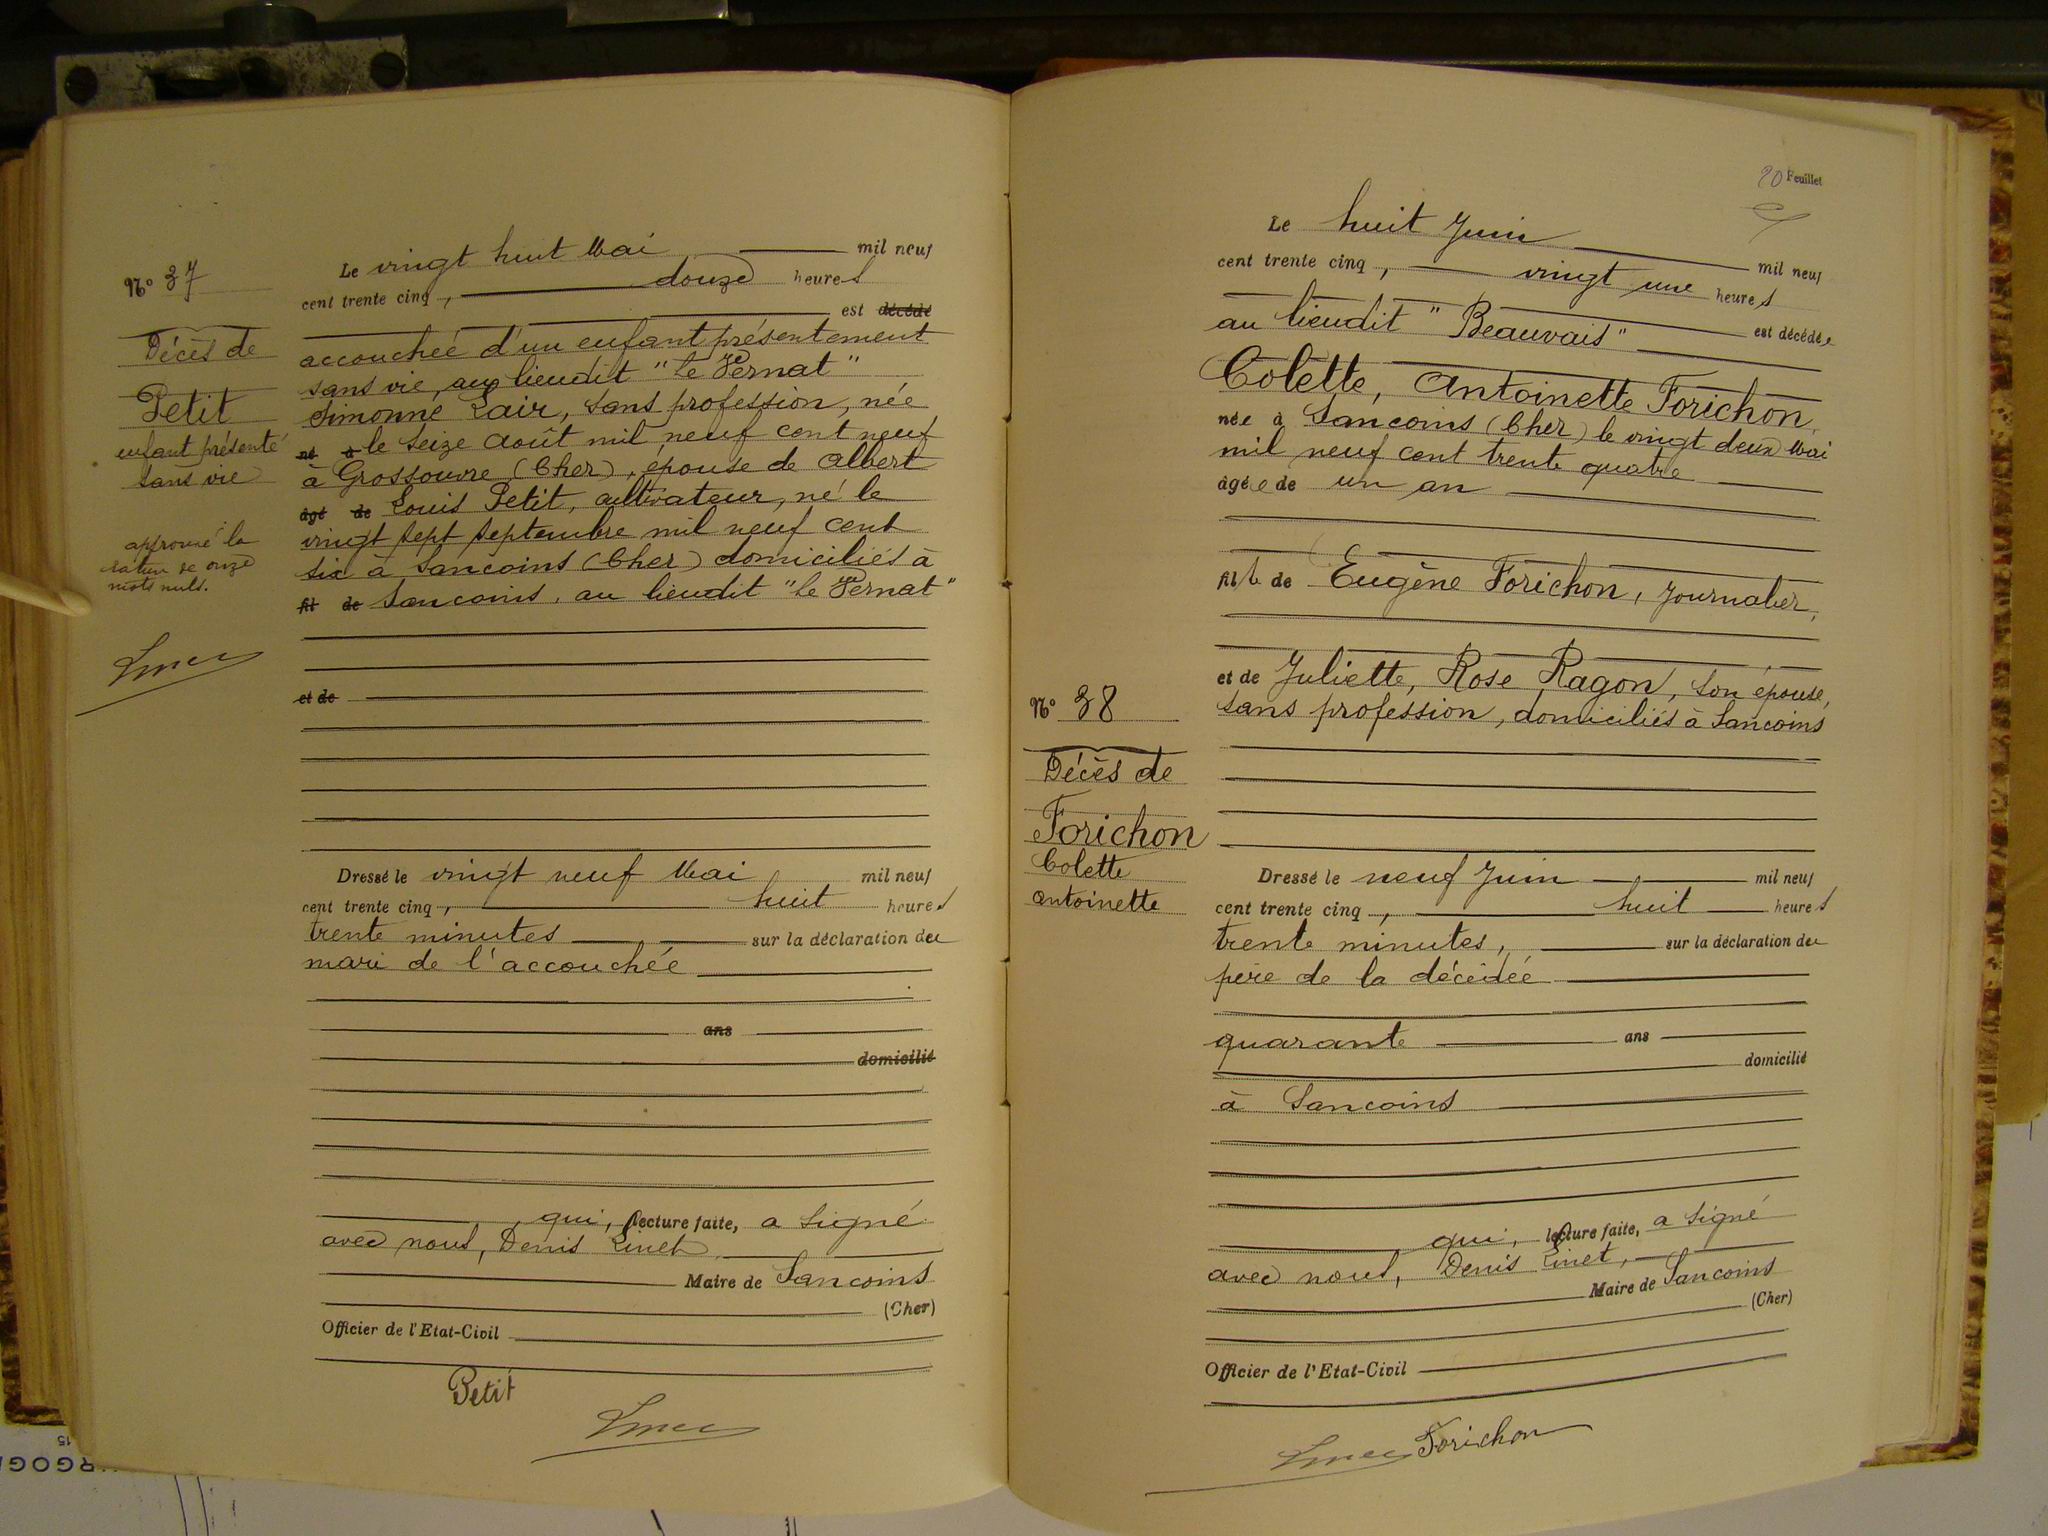 N° 37
Décès de
Petit
enfant présenté
sans vie
approuvé la
rature de onze
mots nuls.
Le vingt huit Mai mil neuf
cent trente cinq, douze heures
est décédé
accouchée d'un enfant présentement
sans vie, au lieudit "Le Vernat"
Simonne Lair, sans profession, née
né à le seize Août mil neuf cent neuf
à Grossouvre (Cher), épouse de Albert
âgé de Louis Petit, cultivateur, né le
vingt sept septembre mil neuf cent
six à Sancoins (Cher) domiciliés à
fil de Sancoins, au lieudit "le Vernat"
et de
Dressé le vingt neuf Mai mil neuf
cent trente cinq, huit heures
trente minutes sur la déclaration du
mari de l'accouchée
ans
domicilié
qui, lecture faite, a signé
avec nous, Denis Linet
Maire de Sancoins
(Cher)
Officier de l'Etat-Civil
Petit
20 Feuillet
N° 38
Décès de
Forichon
Colette
Antoinette
Le huit Juin mil neuf
cent trente cinq, vingt une heures
au lieudit "Beauvais" est décédée
Colette, Antoinette Forichon,
née à Sancoins (Cher) le vingt deux Mai
mil neuf cent trente quatre
âgée de un an
fille de Eugène Forichon, journalier,
et de Juliette, Rose Ragon, son épouse,
sans profession, domiciliés à Sancoins
Dressé le neuf Juin mil neuf
cent trente cinq, huit heures
trente minutes, sur la déclaration du
père de la décédée
quarante ans
domicilié
à Sancoins
qui, lecture faite, a signé
avec nous, Denis Linet,
Maire de Sancoins
(Cher)
Officier de l'Etat-Civil
Forichon